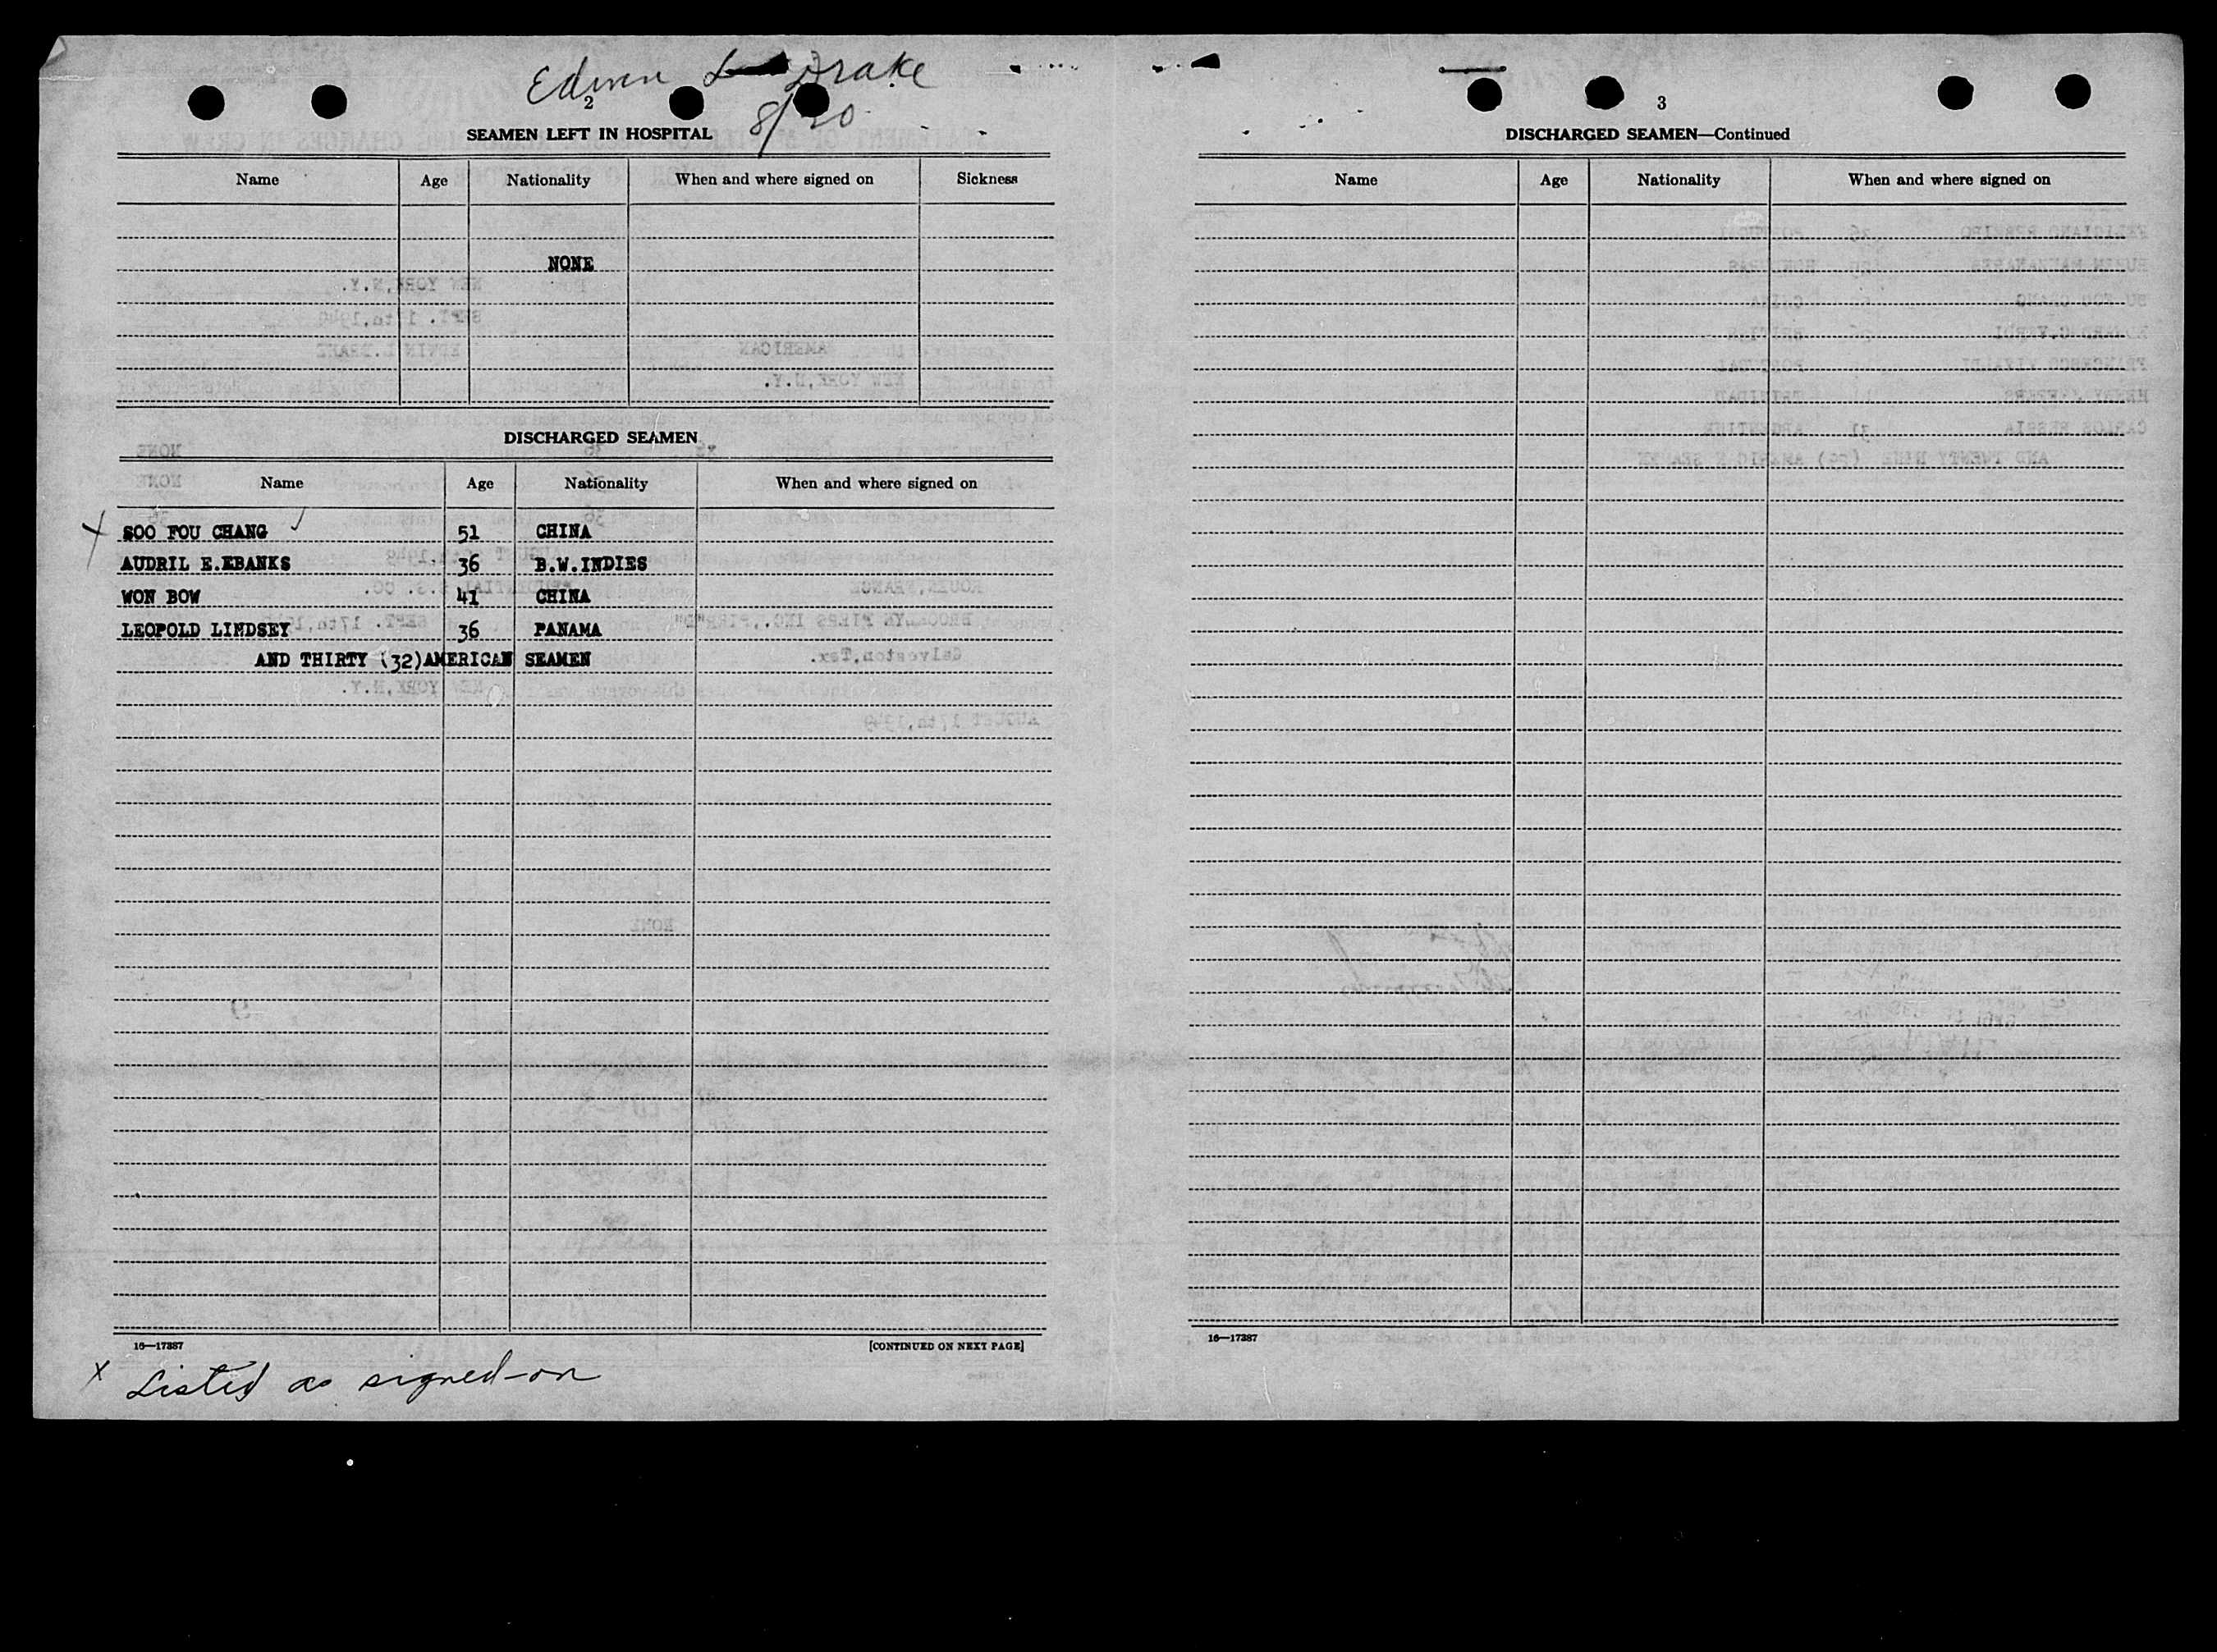 Edwin L Drake
2
8/20
SEAMEN LEFT IN HOSPITAL
Name Age Nationality When and where signed on Sickness
NONE
DISCHARGED SEAMEN
Name Age Nationality When and where signed on
X SOO FOU CHANG ✓ 51 CHINA
AUDRIL E.EBANKS 36 B.W.INDIES
WON BOW 41 CHINA
LEOPOLD LINDSEY 36 PANAMA
AND THIRTY (32)AMERICAN SEAMEN
16—17387 [CONTINUED ON NEXT PAGE]
x Listed as signed-on
3
DISCHARGED SEAMEN—Continued
Name Age Nationality When and where signed on
16—17387